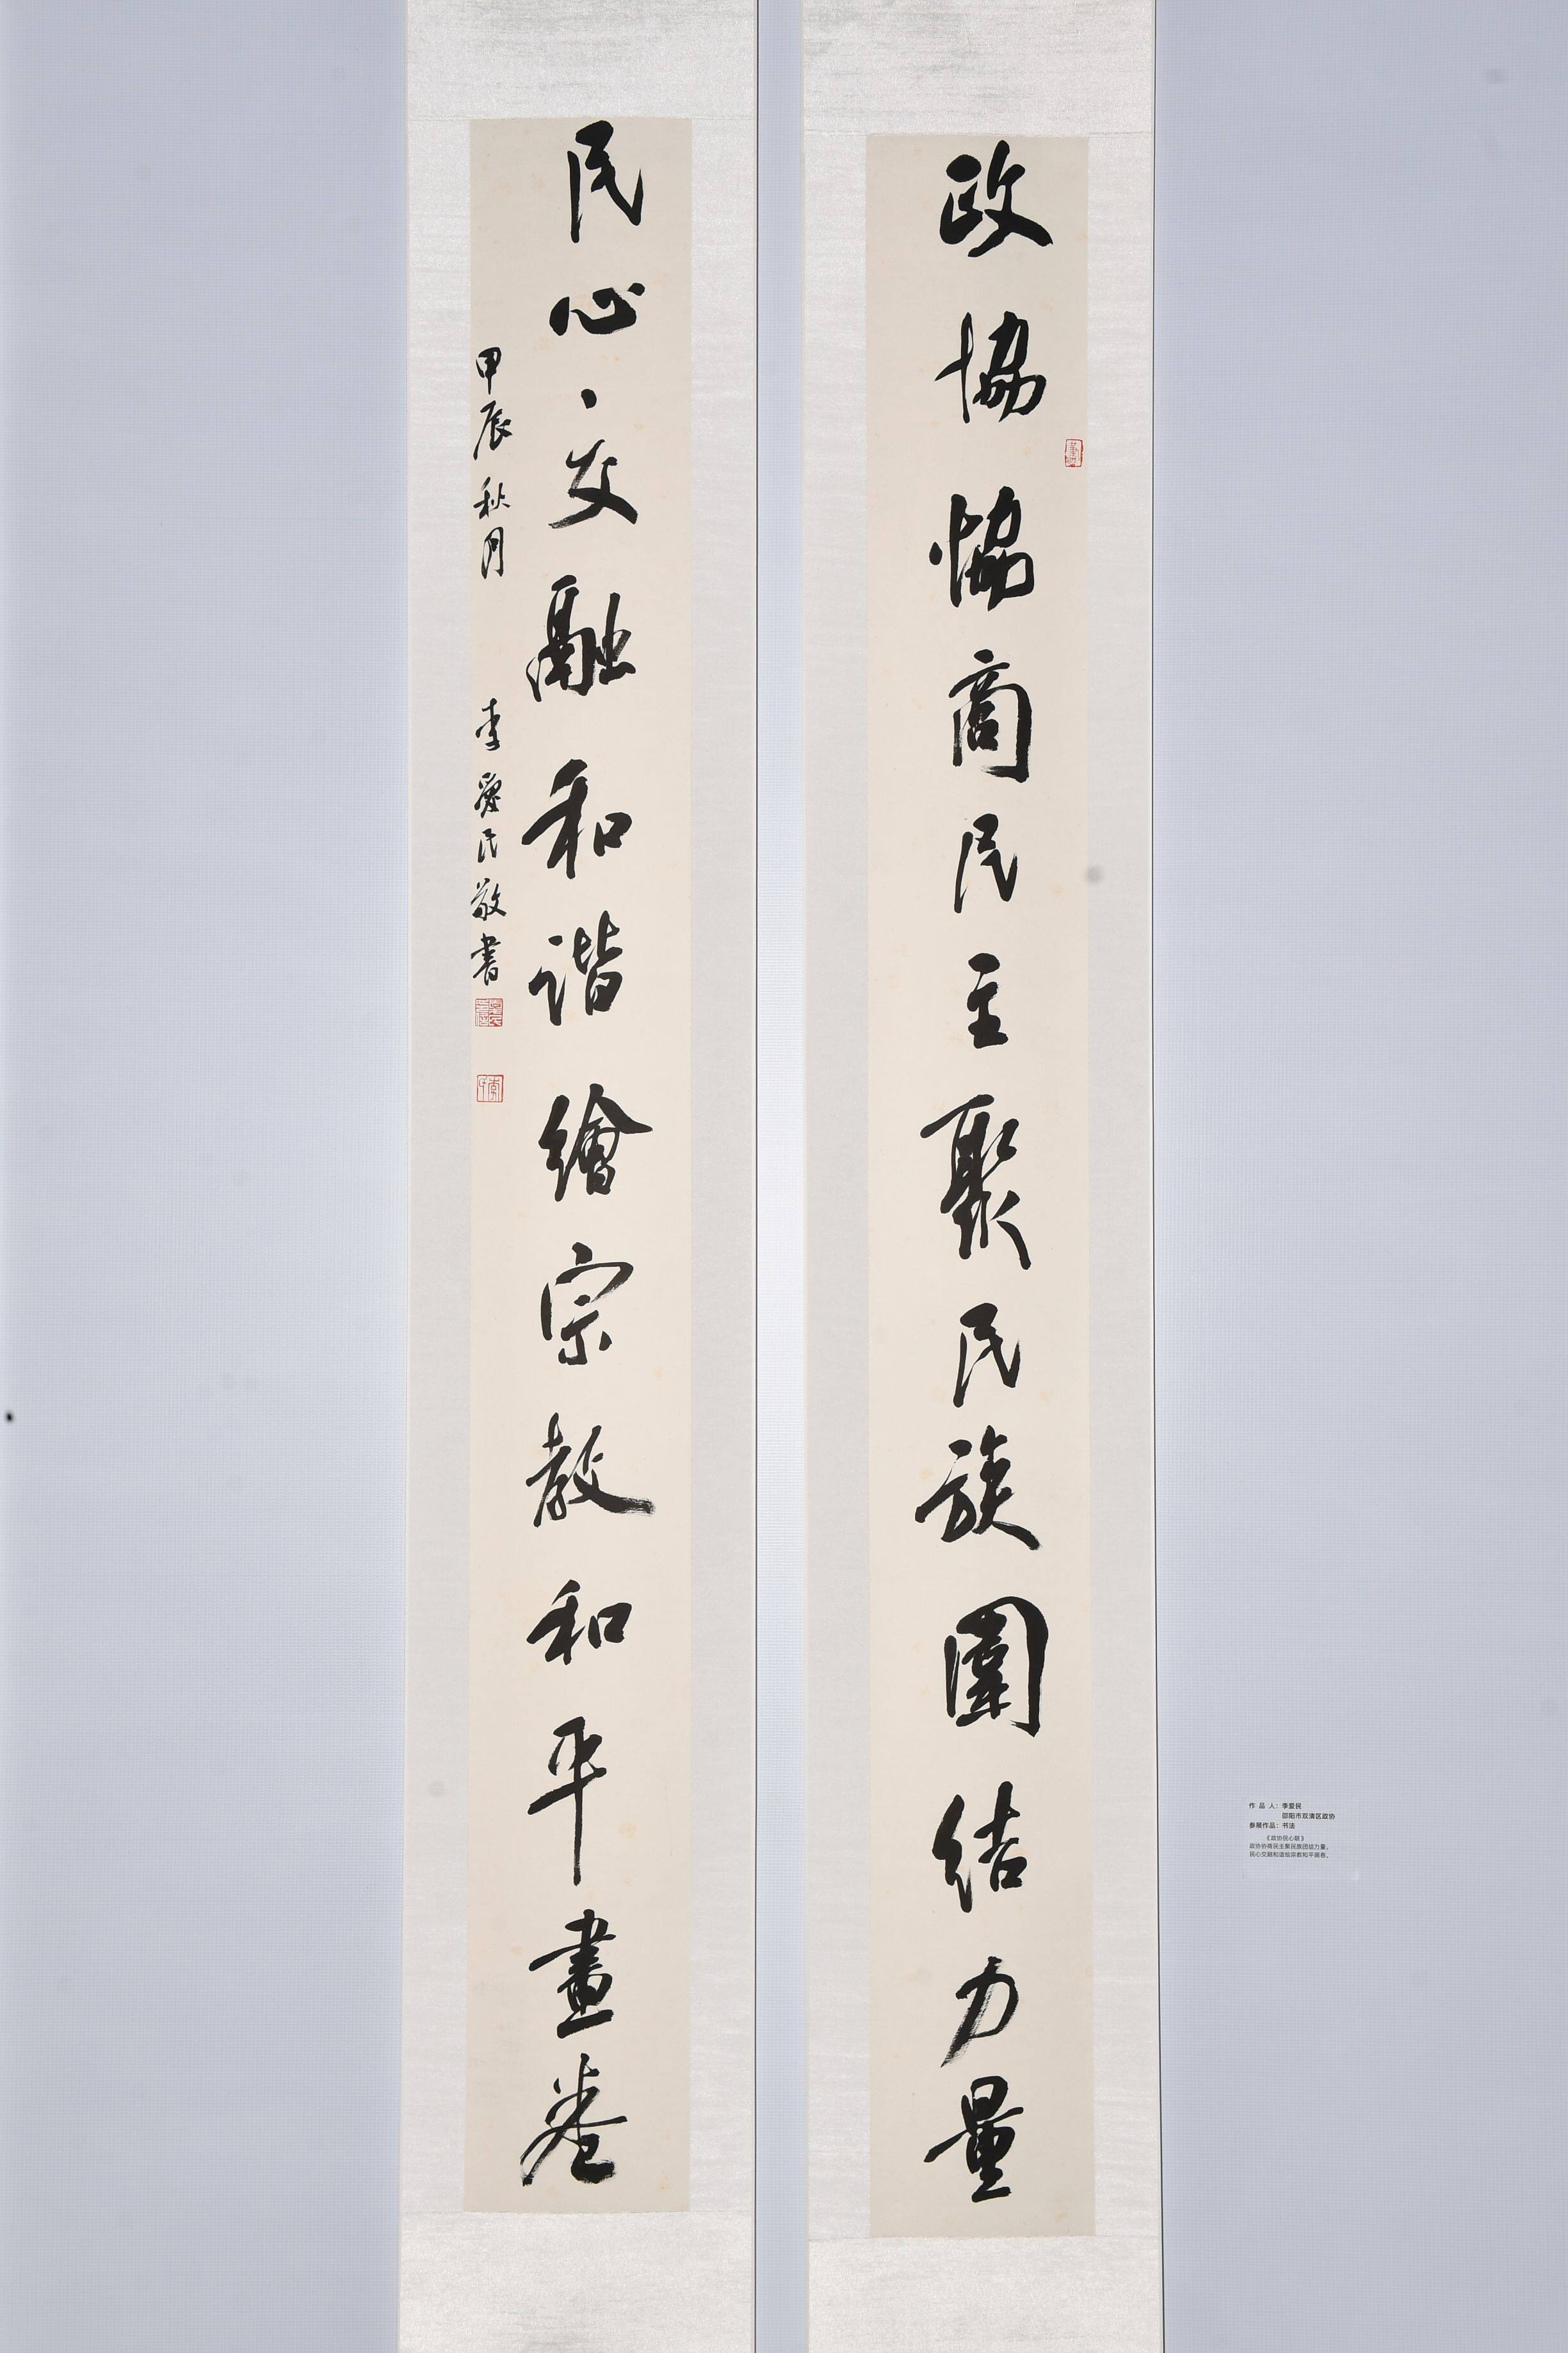 政協恊商民主聚民族團結力量
民心交融和谐繪宗教和平畫卷
甲辰秋月 李愛民敬書
作 品 人：李爱民
邵阳市双清区政协
参展作品：书法
《政协民心联》
政协协商民主聚民族团结力量，
民心交融和谐绘宗教和平画卷。